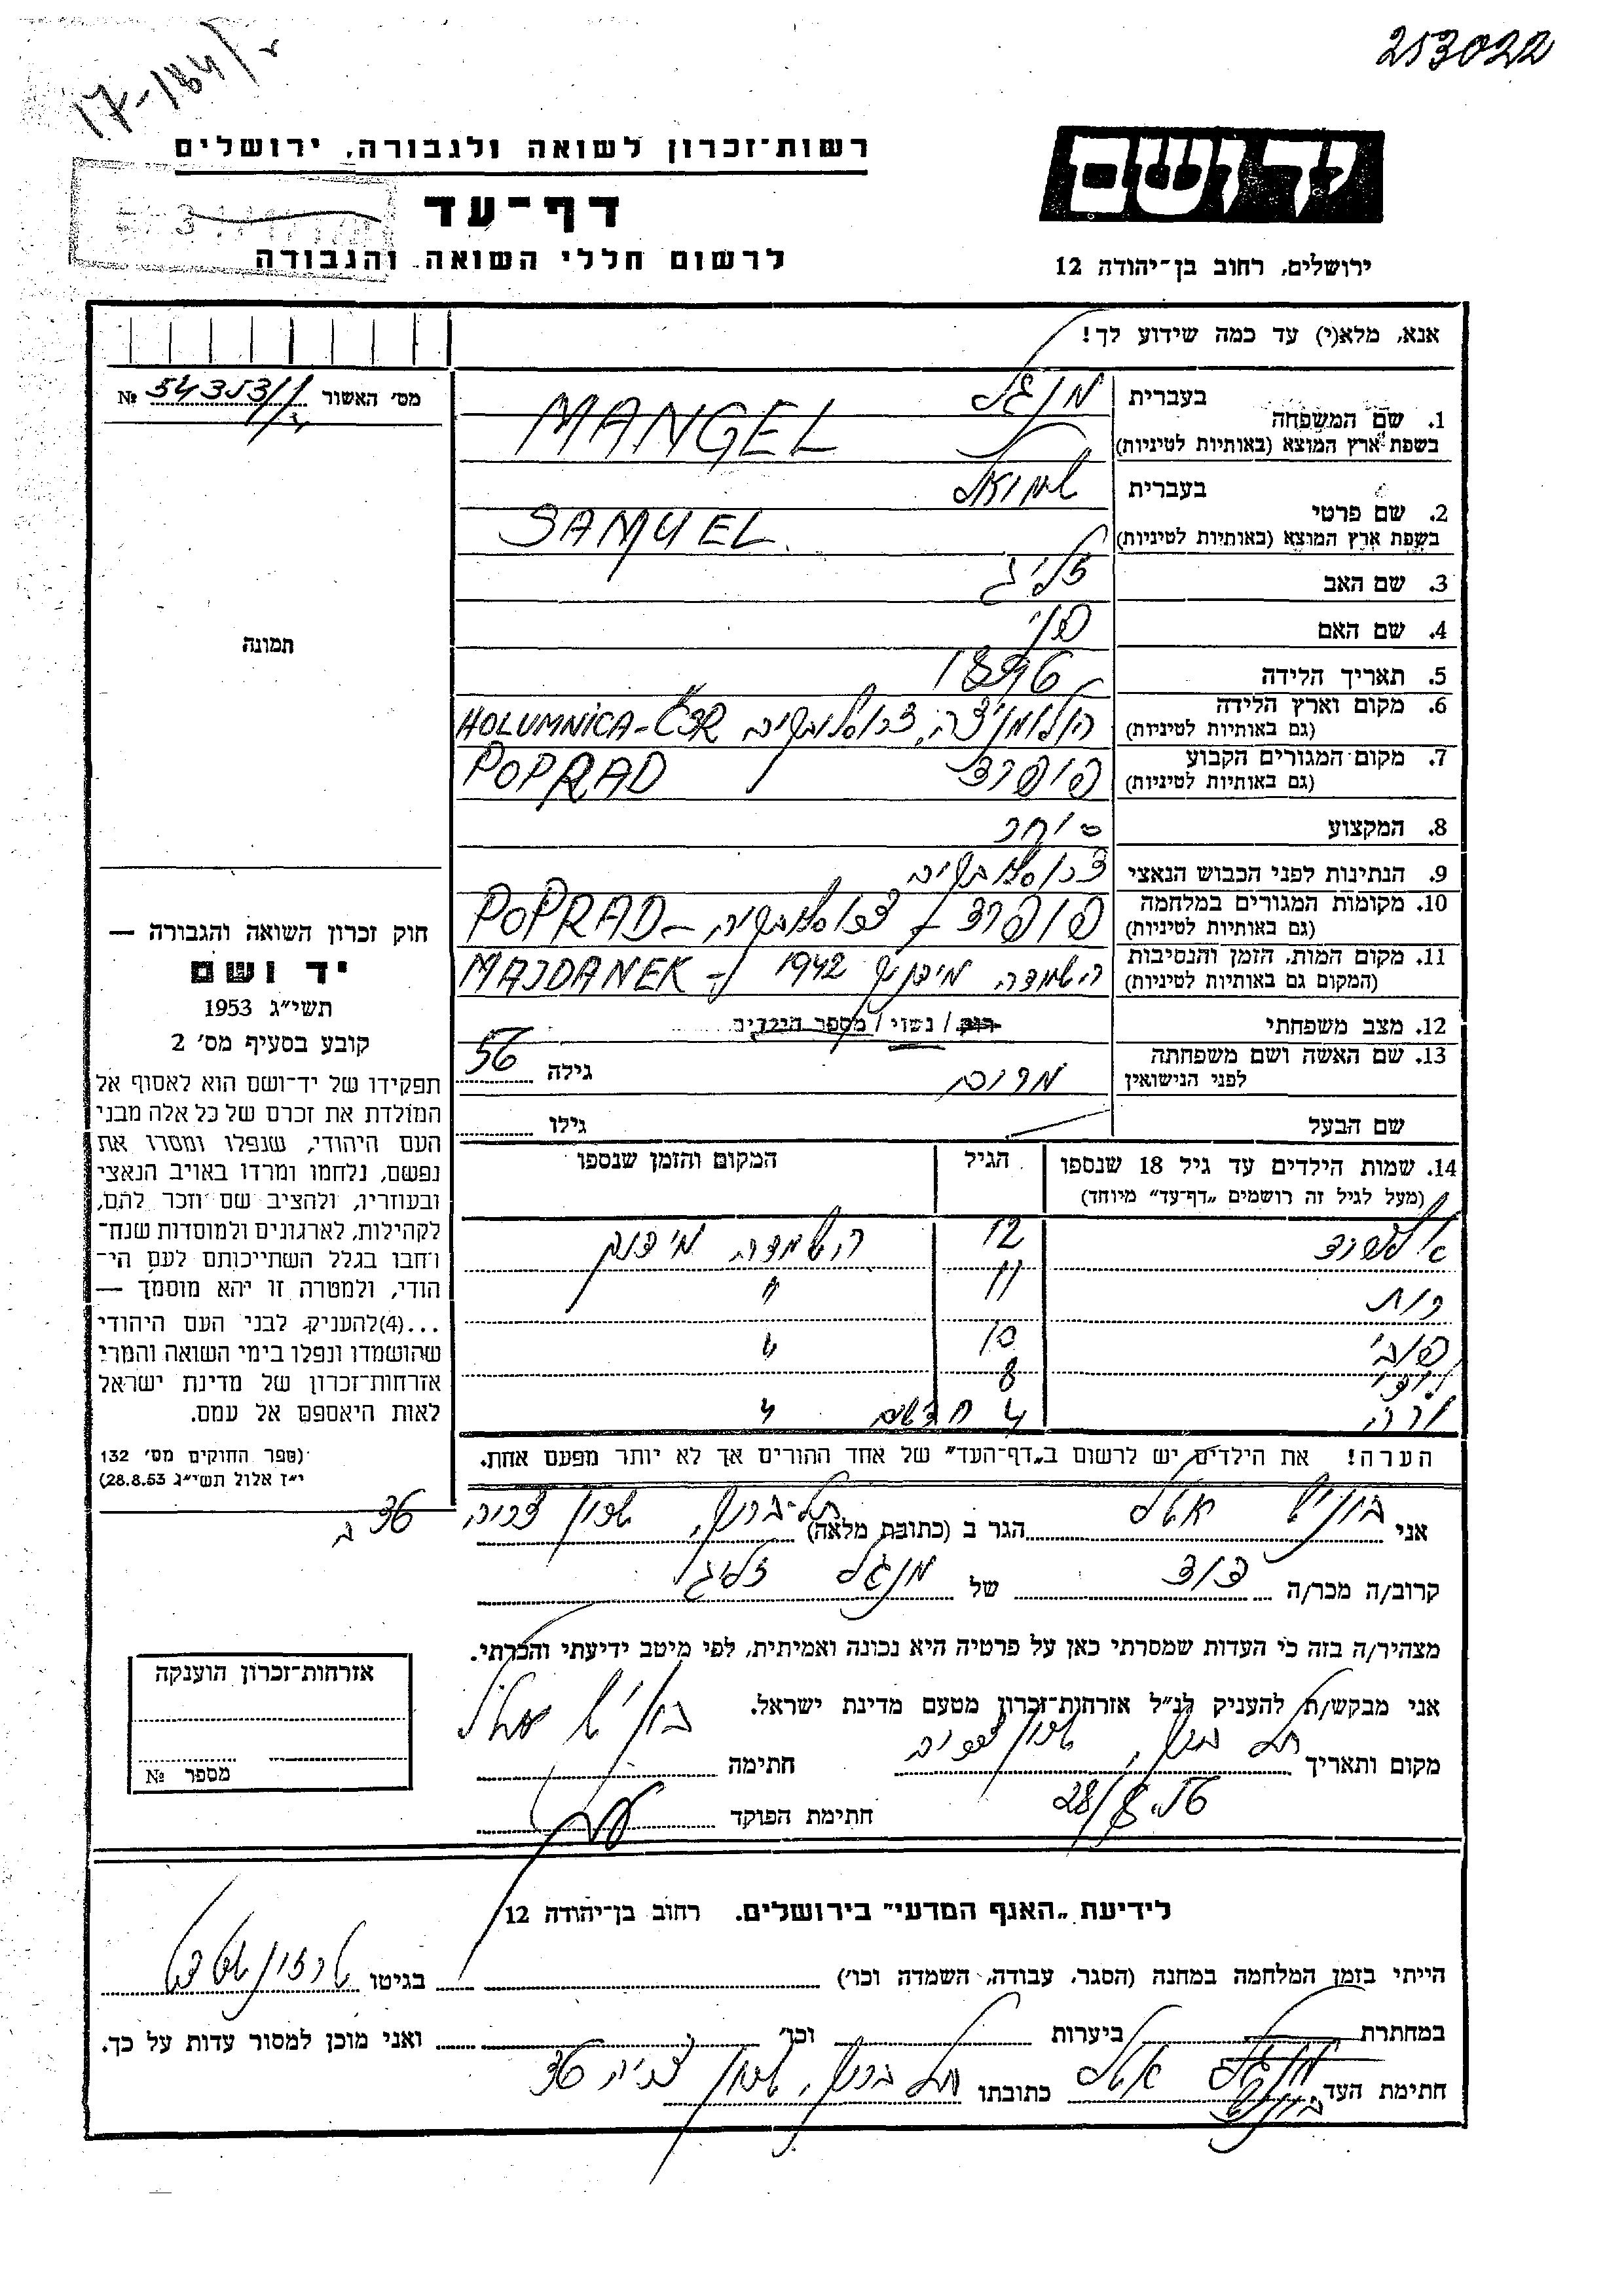 253022
17-184/
רשות-זכרון לשואה ולגבורה, ירושלים
ידושם
דף-עד
לרשום חללי השואה והגבורה
ירושלים, רחוב בן-יהודה 12
אנא, מלא(י) עד כמה שידוע לך!
מס׳ האשור 54353/1 №
1. שם המשפחה בעברית מנגל
בשפת ארץ המוצא (באותיות לטיניות) MANGEL
2. שם פרטי בעברית שמואל
בשפת ארץ המוצא (באותיות לטיניות) SAMUEL
3. שם האב זליג
4. שם האם פני
תמונה
5. תאריך הלידה 1896
6. מקום וארץ הלידה (גם באותיות לטיניות) הולומניצה, צכוסלובקיה HOLUMNICA-ČSR
7. מקום המגורים הקבוע (גם באותיות לטיניות) פופרד POPRAD
8. המקצוע סוחר
9. הנתינות לפני הכבוש הנאצי צכוסלובקיה
10. מקומות המגורים במלחמה (גם באותיות לטיניות) פופרד - צכוסלובקיה - POPRAD
11. מקום המות, הזמן והנסיבות (המקום גם באותיות לטיניות) השמדה מידנק 1942 - MAJDANEK
12. מצב משפחתי רווק / נשוי / מספר הילדים
13. שם האשה ושם משפחתה לפני הנישואין גילה 56
שם הבעל גילו
14. שמות הילדים עד גיל 18 שנספו הגיל המקום והזמן שנספו
(מעל לגיל זה רושמים „דף-עד” מיוחד)
12 השמדה מידנק
רות 11 "
10 "
8
4 חדשים "
הערה! את הילדים יש לרשום ב„דף-העד” של אחד ההורים אך לא יותר מפעם אחת.
חוק זכרון השואה והגבורה —
יד ושם
תשי״ג 1953
קובע בסעיף מס׳ 2
תפקידו של יד-ושם הוא לאסוף אל
המולדת את זכרם של כל אלה מבני
העם היהודי, שנפלו ומסרו את
נפשם, נלחמו ומרדו באויב הנאצי
ובעוזריו, ולהציב שם וזכר להם,
לקהילות, לארגונים ולמוסדות שנח-
רחבו בגלל השתייכותם לעם הי-
הודי, ולמטרה זו יהא מוסמך —
...(4)להעניק לבני העם היהודי
שהושמדו ונפלו בימי השואה והמרי
אזרחות-זכרון של מדינת ישראל
לאות היאספם אל עמם.
(ספר החוקים מס׳ 132
י״ז אלול תשי״ג 28.8.53)
אני הגר ב (כתובת מלאה) תל-ברוך, שכון 36 ב
קרוב/ה מכר/ה דוד של מנגל זליג
מצהיר/ה בזה כי העדות שמסרתי כאן על פרטיה היא נכונה ואמיתית, לפי מיטב ידיעתי והכרתי.
אני מבקש/ת להעניק לנ״ל אזרחות-זכרון מטעם מדינת ישראל.
מקום ותאריך תל ברוך, שכון חתימה
28/8.56 חתימת הפוקד
אזרחות-זכרון הוענקה
מספר №
לידיעת „האגף המדעי” בירושלים. רחוב בן-יהודה 12
הייתי בזמן המלחמה במחנה (הסגר, עבודה, השמדה וכו׳) בגיטו טרזינשטט
במחתרת ביערות וכו׳ ואני מוכן למסור עדות על כך.
חתימת העד כתובתו תל ברוך, שכון 36